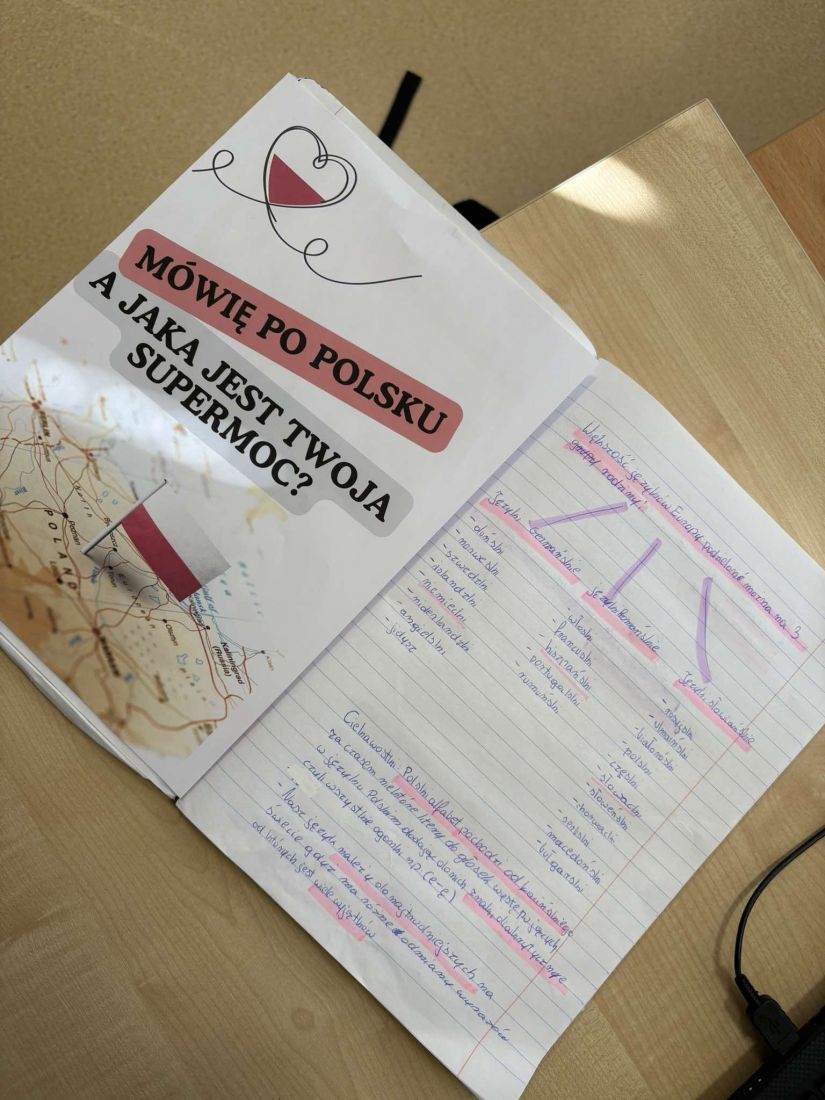 MÓWIĘ PO POLSKU
A JAKA JEST TWOJA
SUPERMOC?
POLAND
Poznan
Kaliningrad
(Russia)
Większość języków Europy podzielić można na 3
grupy rodziny:
Języki Germańskie
- duński
- norweski
- szwedzki
- islandzki
- niemiecki
- niderlandzki
- angielski
- jidysz
Języki Romańskie
- włoski
- francuski
- hiszpański
- portugalski
- rumuński
Języki słowiańskie
- rosyjski
- ukraiński
- białoruski
- polski
- czeski
- słowacki
- słoweński
- chorwacki
- serbski
- macedoński
- bułgarski
Ciekawostki: Polski alfabet pochodzi od łacińskiego
za czasem niektóre litery do głosek
w języku Polskim dodając do nich znaki diakrytyczne
czyli wszystkie ogonki np. (e-ę)
- Nasz język należy do najtrudniejszych na
świecie gdyż ma różne odmiany wyrazów
od których jest wiele wyjątków